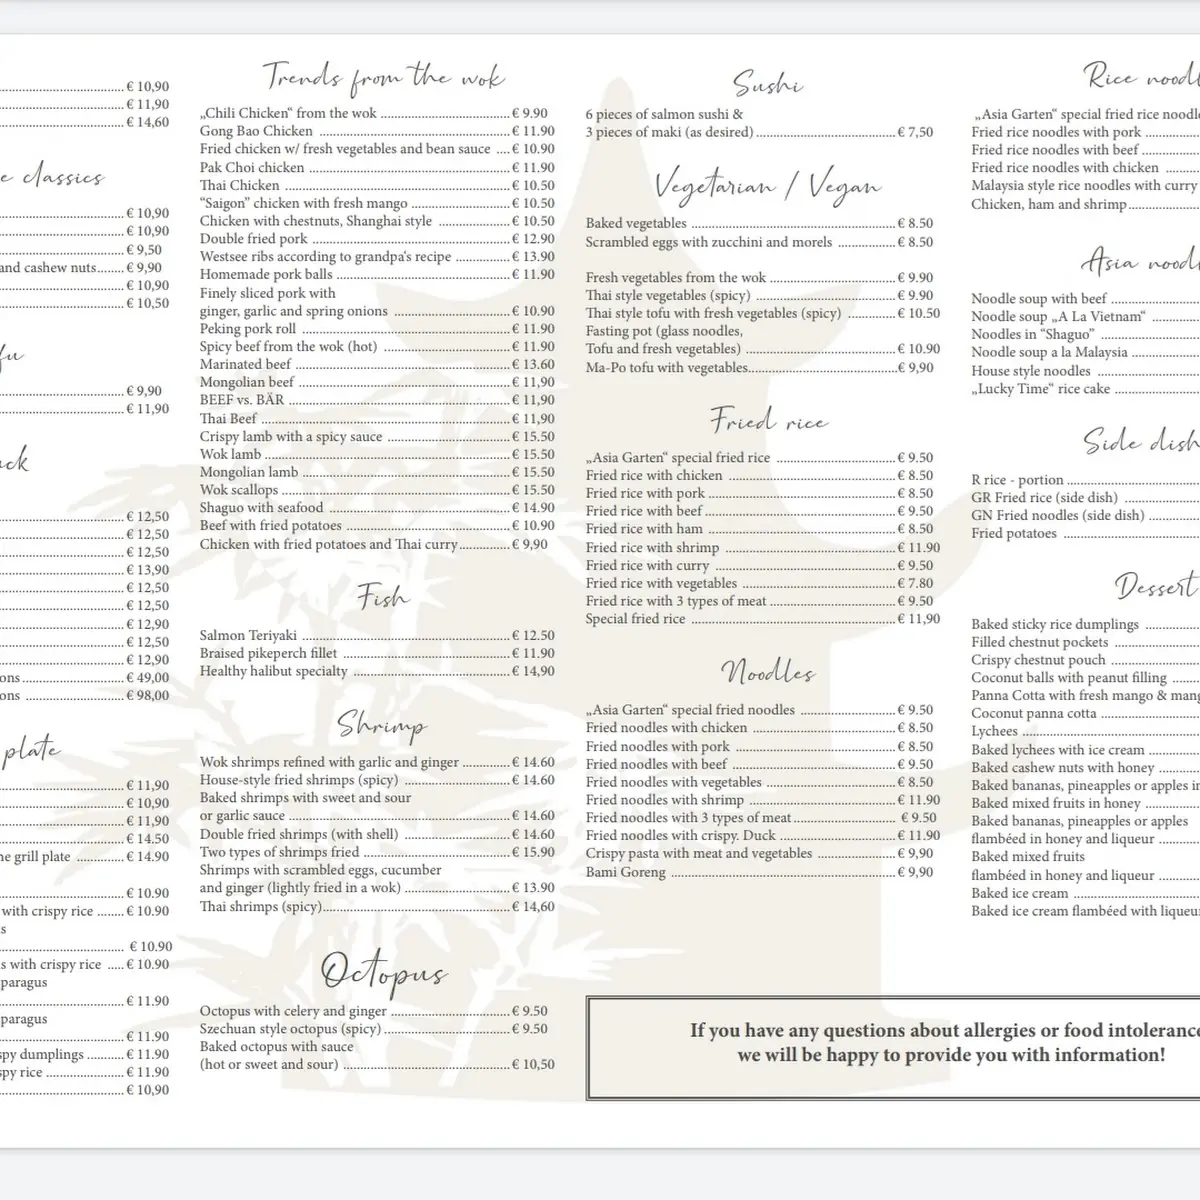 € 10,90
€ 11,90
€ 14,60
e classics
€ 10,90
€ 10,90
€ 9,50
and cashew nuts.......€ 9,90
€ 10,90
€ 10,50
fu
€ 9,90
€ 11,90
ck
€ 12,50
€ 12,50
€ 12,50
€ 13,90
€ 12,50
€ 12,50
€ 12,90
€ 12,50
€ 12,90
ons ........ € 49,00
ons ........ € 98,00
plate
€ 11,90
€ 10,90
€ 11,90
€ 14.50
he grill plate ............ € 14.90
€ 10.90
with crispy rice ....... € 10.90
s
€ 10.90
s with crispy rice .....€ 10.90
paragus
€ 11.90
paragus
€ 11.90
spy dumplings ......... € 11.90
spy rice ......... € 11.90
€ 10,90
Trends from the wok
„Chili Chicken“ from the wok ........ € 9.90
Gong Bao Chicken ........ € 11.90
Fried chicken w/ fresh vegetables and bean sauce ....€ 10.90
Pak Choi chicken ........ € 11.90
Thai Chicken ........ € 10.50
“Saigon” chicken with fresh mango ........ € 10.50
Chicken with chestnuts, Shanghai style ........ € 10.50
Double fried pork ........ € 12.90
Westsee ribs according to grandpa's recipe ........ € 13.90
Homemade pork balls ........ € 11.90
Finely sliced pork with
ginger, garlic and spring onions ........ € 10.90
Peking pork roll ........ € 11.90
Spicy beef from the wok (hot) ........ € 11.90
Marinated beef ........ € 13.60
Mongolian beef ........ € 11,90
BEEF vs. BÄR ........ € 11,90
Thai Beef ........ € 11,90
Crispy lamb with a spicy sauce ........ € 15.50
Wok lamb ........ € 15.50
Mongolian lamb ........ € 15.50
Wok scallops ........ € 15.50
Shaguo with seafood ........ € 14.90
Beef with fried potatoes ........ € 10.90
Chicken with fried potatoes and Thai curry ........ € 9,90
Fish
Salmon Teriyaki ........ € 12.50
Braised pikeperch fillet ........ € 11.90
Healthy halibut specialty ........ € 14,90
Shrimp
Wok shrimps refined with garlic and ginger ........ € 14.60
House-style fried shrimps (spicy) ........ € 14.60
Baked shrimps with sweet and sour
or garlic sauce ........ € 14.60
Double fried shrimps (with shell) ........ € 14.60
Two types of shrimps fried ........ € 15.90
Shrimps with scrambled eggs, cucumber
and ginger (lightly fried in a wok) ........ € 13.90
Thai shrimps (spicy) ........ € 14,60
Octopus
Octopus with celery and ginger ........ € 9.50
Szechuan style octopus (spicy) ........ € 9.50
Baked octopus with sauce
(hot or sweet and sour) ........ € 10,50
Sushi
6 pieces of salmon sushi &
3 pieces of maki (as desired) ........ € 7,50
Vegetarian / Vegan
Baked vegetables ........ € 8.50
Scrambled eggs with zucchini and morels ........ € 8.50
Fresh vegetables from the wok ........ € 9.90
Thai style vegetables (spicy) ........ € 9.90
Thai style tofu with fresh vegetables (spicy) ........ € 10.50
Fasting pot (glass noodles,
Tofu and fresh vegetables) ........ € 10.90
Ma-Po tofu with vegetables ........ € 9,90
Fried rice
„Asia Garten“ special fried rice ........ € 9.50
Fried rice with chicken ........ € 8.50
Fried rice with pork ........ € 8.50
Fried rice with beef ........ € 9.50
Fried rice with ham ........ € 8.50
Fried rice with shrimp ........ € 11.90
Fried rice with curry ........ € 9.50
Fried rice with vegetables ........ € 7.80
Fried rice with 3 types of meat ........ € 9.50
Special fried rice ........ € 11,90
Noodles
„Asia Garten“ special fried noodles ........ € 9.50
Fried noodles with chicken ........ € 8.50
Fried noodles with pork ........ € 8.50
Fried noodles with beef ........ € 9.50
Fried noodles with vegetables ........ € 8.50
Fried noodles with shrimp ........ € 11.90
Fried noodles with 3 types of meat ........ € 9.50
Fried noodles with crispy. Duck ........ € 11.90
Crispy pasta with meat and vegetables ........ € 9,90
Bami Goreng ........ € 9,90
Rice noodl
„Asia Garten“ special fried rice noodle
Fried rice noodles with pork ........
Fried rice noodles with beef ........
Fried rice noodles with chicken ........
Malaysia style rice noodles with curry
Chicken, ham and shrimp ........
Asia noodl
Noodle soup with beef ........
Noodle soup „A La Vietnam“ ........
Noodles in “Shaguo” ........
Noodle soup a la Malaysia ........
House style noodles ........
„Lucky Time“ rice cake ........
Side dish
R rice - portion ........
GR Fried rice (side dish) ........
GN Fried noodles (side dish) ........
Fried potatoes ........
Dessert
Baked sticky rice dumplings ........
Filled chestnut pockets ........
Crispy chestnut pouch ........
Coconut balls with peanut filling ........
Panna Cotta with fresh mango & mang
Coconut panna cotta ........
Lychees ........
Baked lychees with ice cream ........
Baked cashew nuts with honey ........
Baked bananas, pineapples or apples in
Baked mixed fruits in honey ........
Baked bananas, pineapples or apples
flambéed in honey and liqueur ........
Baked mixed fruits
flambéed in honey and liqueur ........
Baked ice cream ........
Baked ice cream flambéed with liqueur
If you have any questions about allergies or food intolerance
we will be happy to provide you with information!